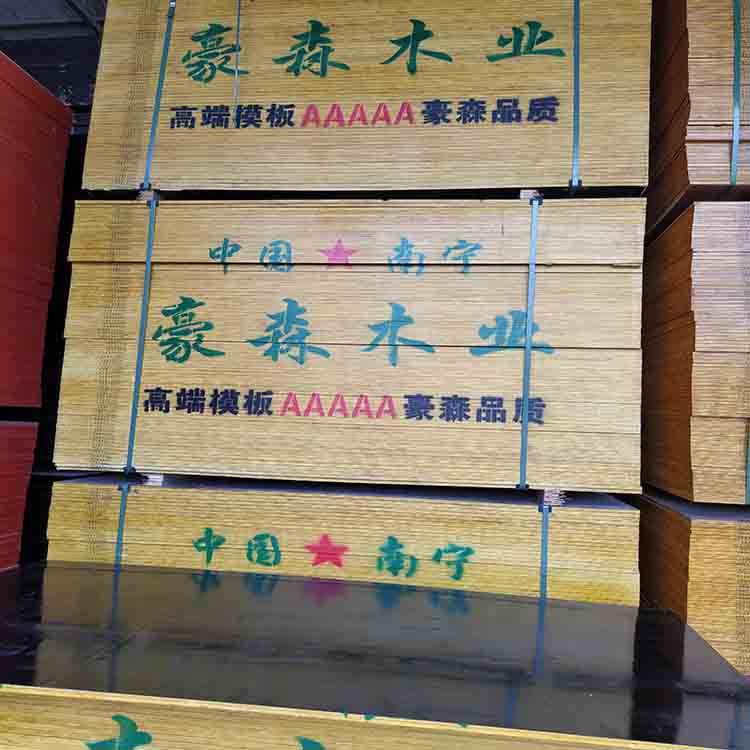 豪森木业
高端模板AAAAA豪森品质
中国★南宁
豪森木业
高端模板AAAAA豪森品质
中国★南宁